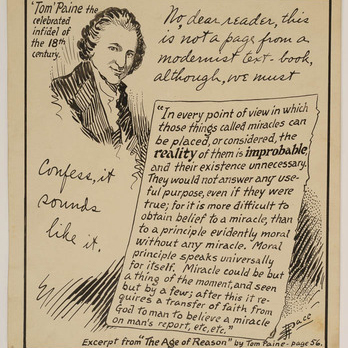 'Tom' Paine the
celebrated
infidel of
the 18th
century.
No, dear reader, this
is not a page from a
modernist text-book,
although, we must
Confess, it
sounds
like it.
"In every point of view in which
those things called miracles can
be placed, or considered, the
reality of them is improbable,
and their existence unnecessary.
They would not answer any use-
ful purpose, even if they were
true; for it is more difficult to
obtain belief to a miracle, than
to a principle evidently moral
without any miracle. Moral
principle speaks universally
for itself. Miracle could be but
a thing of the moment, and seen
but by a few; after this it re-
quires a transfer of faith from
God to man to believe a miracle
on man's report, etc, etc."
Pace
Excerpt from "The Age of Reason" by Tom Paine - page 56.